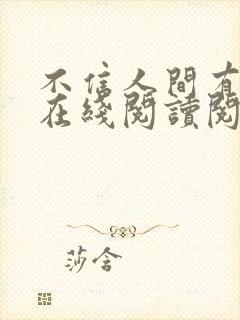 不信人間有
在綫閱讀閱
莎含